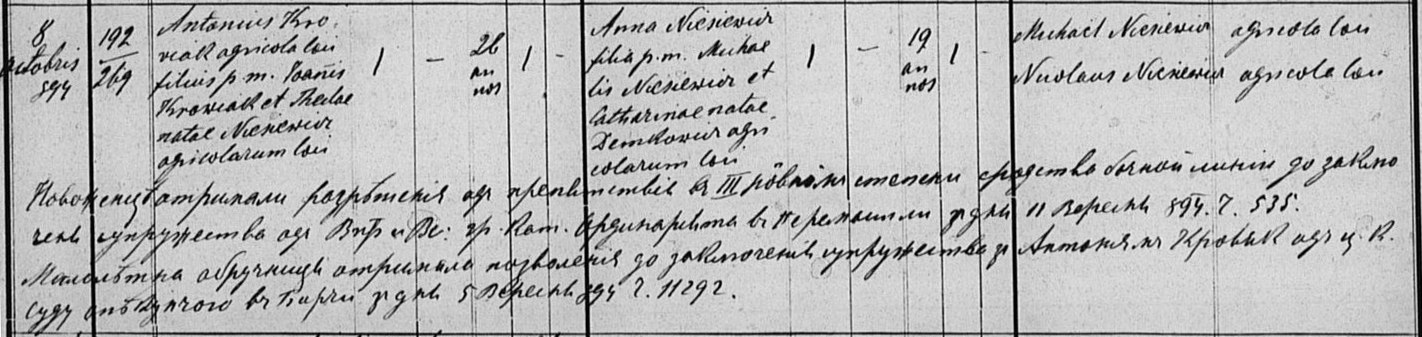 8 octobris 894
192 / 269
Antonius Kro-
wiak agricola loci
filius p. m. Joañis
Krowiak et Theclae
natae Niesiewicz
agricolarum loci
1 — 26 annos 1 -
Anna Niesiewicz
filia p. m. Michae
lis Niesiewicz et
Catharinae natae
Demkowicz agri
colarum loci
1 — 19 annos 1 -
Michael Niesiewicz agricola loci
Nicolaus Niesiewicz agricola loci
Новоженцѣ отримали розрѣшенія одъ препятствія въ III рôвномъ степени сродства бочной линіи до заключо
ченя супружества одъ гр. Кат. Ординаріята въ Перемышли зъ дня 11 Вересня 894. Ч. 535.
Малолѣтна обручниця отримала позволенія до заключенія супружества зъ Антонимъ Кровякъ одъ ц. К.
Суду опѣкунчого въ Бирчи зъ дня 5 Вересня 894 Ч. 11292.